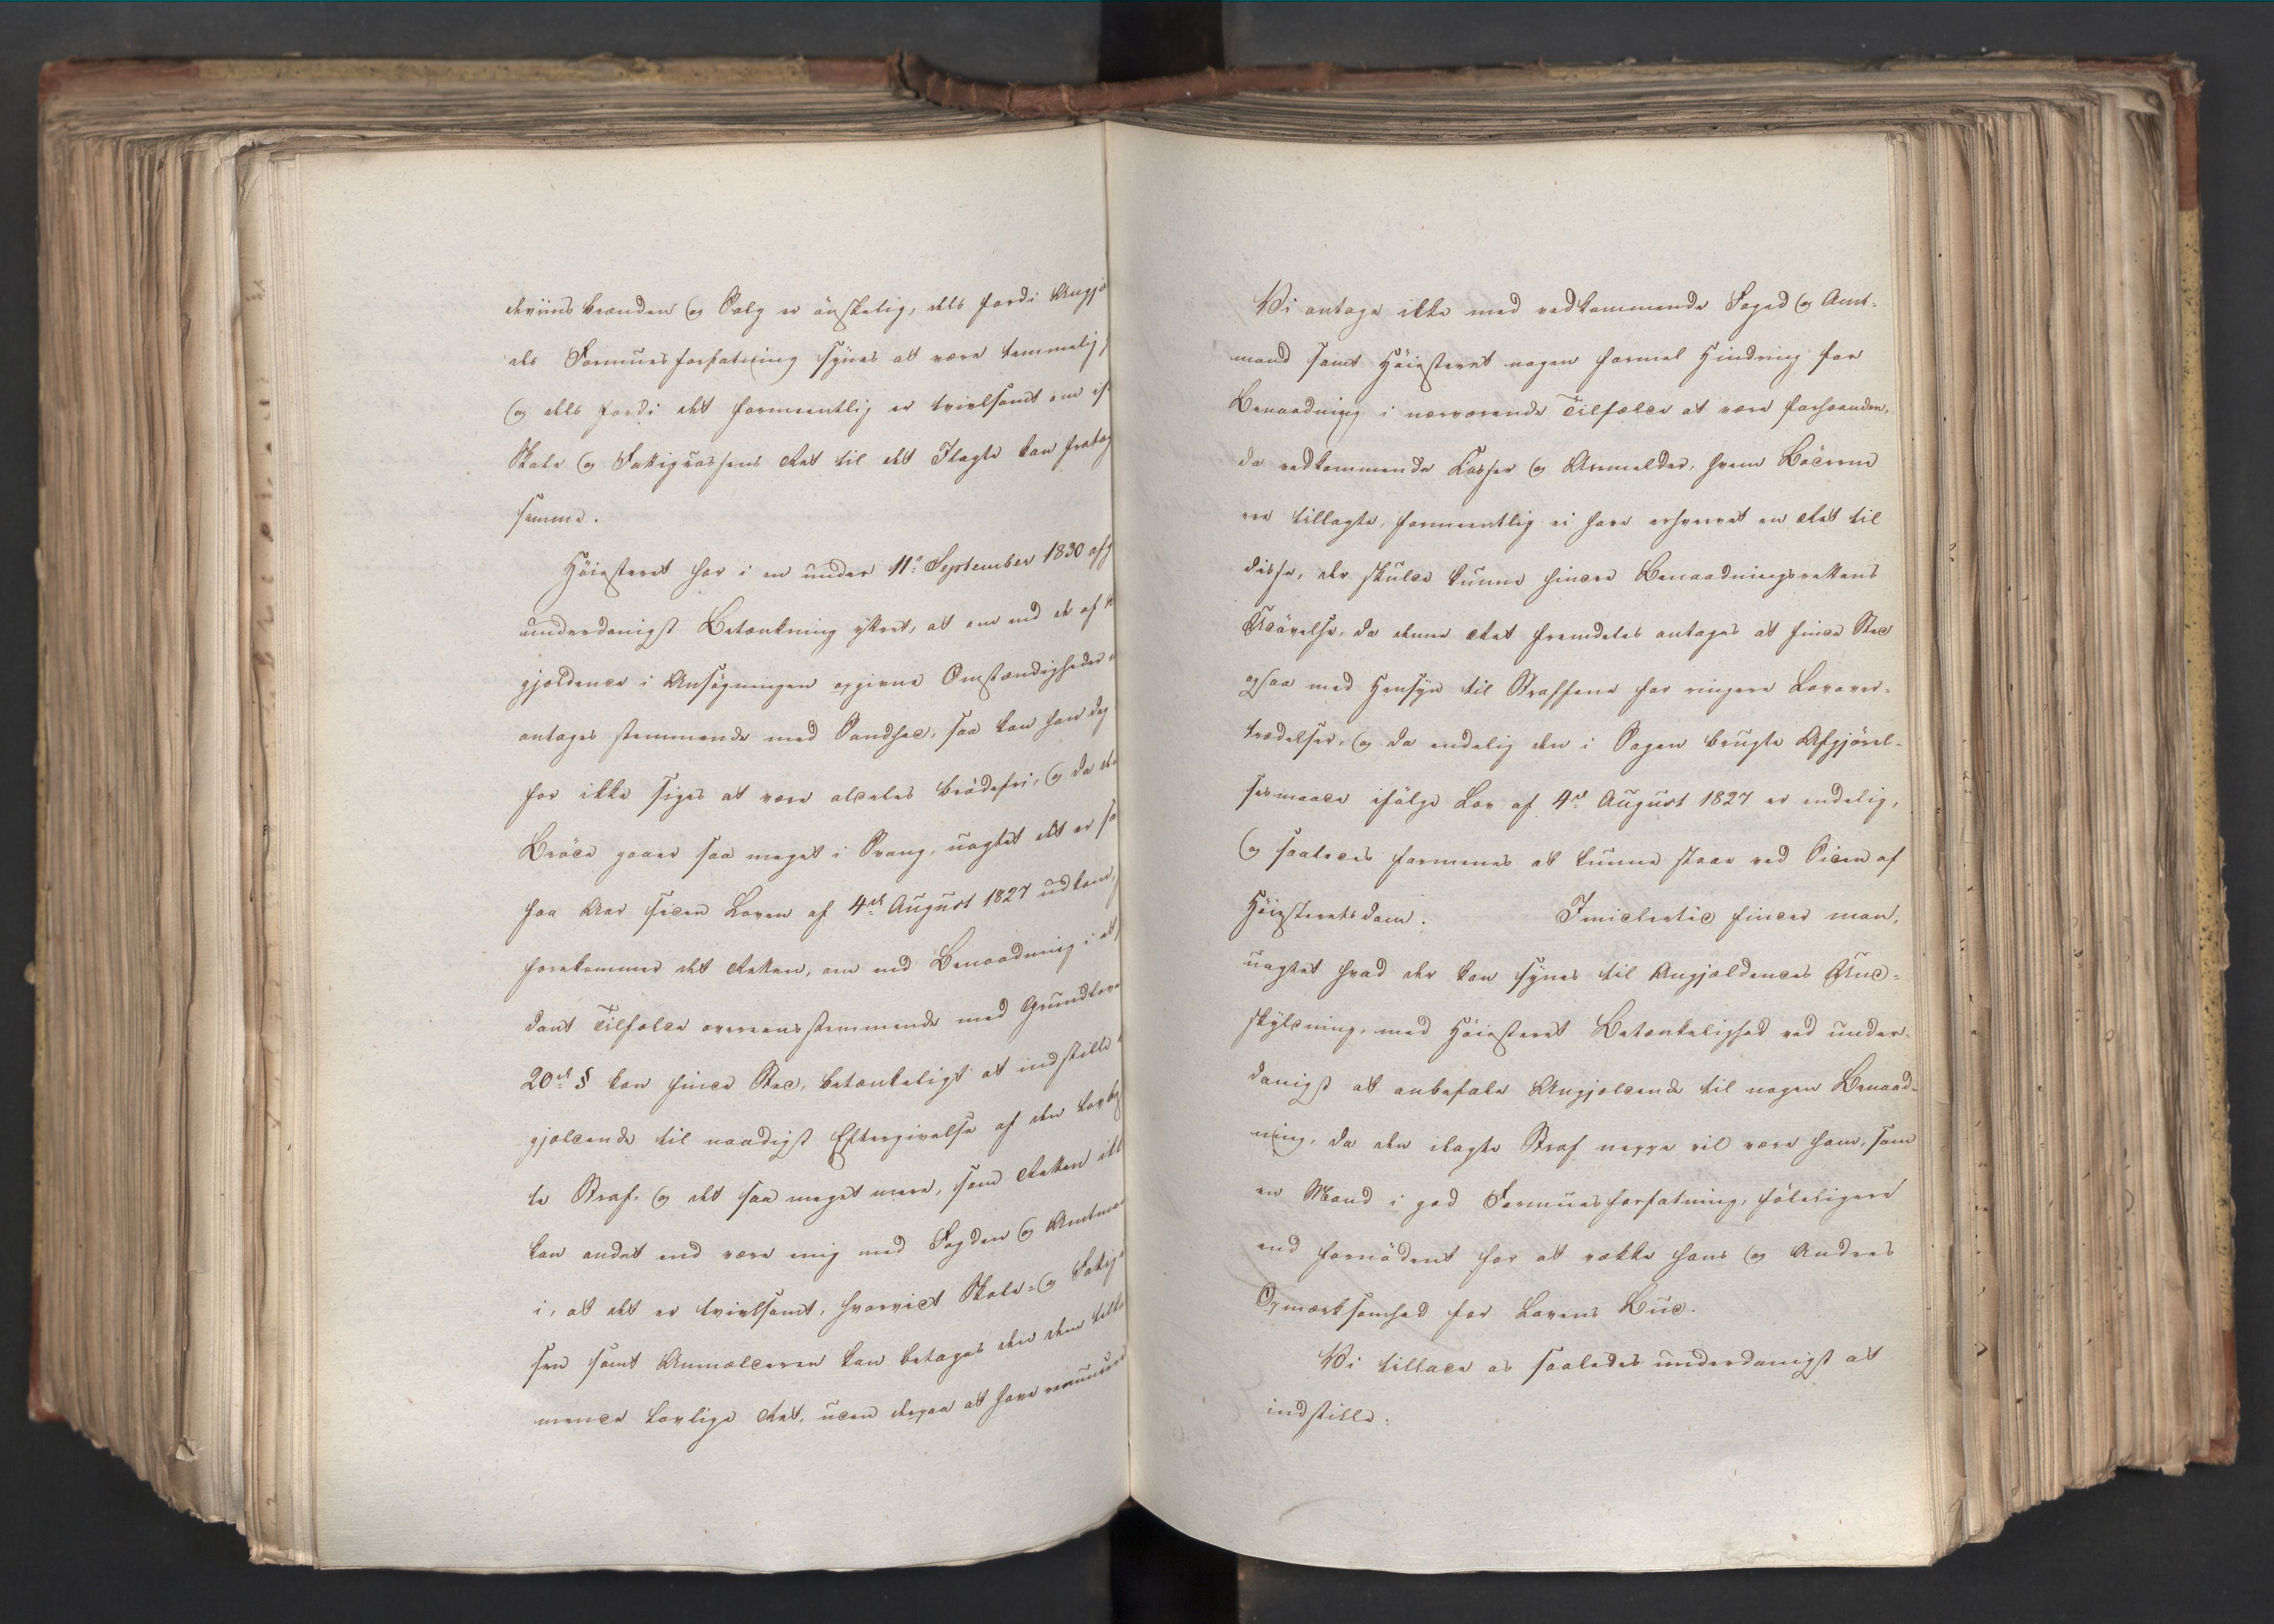 deviinsbrænden og Salg er önskelig, dels fordi Angjæ
des Formuesforfatning synes at være temmelig
og dels fordi det formeentlig er tvivlsomt om
Skole og Fattigkassens Ret til det Ilagte kan fratag
samme.
Höiesteret har i en under 11te September 1830 afg
underdanigst Betænkning yttret, at om end de af
gjældende i Ansögningen opgivne Omstændigheder
antages stemmende med Sandhed, saa kan han dog
for ikke siges at være aldeles brödefri, og da de
Bröde gaaer saa meget i Svang, uagtet det er sa
faa Aar siden Loven af 4de August 1827 udkom,
forekommer det Retten, om end Benaadning i et
dant Tilfælde overeensstemmende med Grundlove
20de § kan finde Sted, betænkeligt at indstille
gjældende til naadigst Eftergivelse af den lovbe
te Straf. og det saa meget mere, som Retten ikk
kan andet end være enig med Fogden og Amtman
i, at det er tvivlsomt, hvorvidt Skole- og Fattigk
sen samt Anmelderen kan betages den dem tilko
mende lovlige Ret, uden derpaa at have renuncer
Vi antage ikke med vedkommende Foged og Amt-
mand samt Höiesteret nogen formel Hindring for
Benaadning i nærværende Tilfælde at være forhaanden,
da vedkommende Kasser og Anmelder, hvem Böderne
ere tillagte, formeentlig ei have erhvervet en Ret til
disse, der skulde kunne hindre Benaadningsrettens
Udövelse, da denne Ret fremdeles antages at finde Sted
ogsaa med Hensyn til Straffene for ringere Lovover-
trædelser, og da endelig den i Sagen brugte Afgjörel-
sesmaade ifölge Lov af 4de August 1827 er endelig,
og saaledes formenes at kunne staae ved Siden af
Höiesteretsdom. Imidlertid finder man,
uagtet hvad der kan synes til Angjældendes Und-
skyldning, med Höiesteret Betænkelighed ved under-
danigst at anbefale Angjældende til nogen Benaad-
ning, da den ilagte Straf neppe vil være ham, som
en Mand i god Formuesforfatning, föleligere
end fornödent for at vække hans og Andres
Opmærksomhed for Lovens Bud.
Vi tillade os saaledes underdanigst at
indstille: